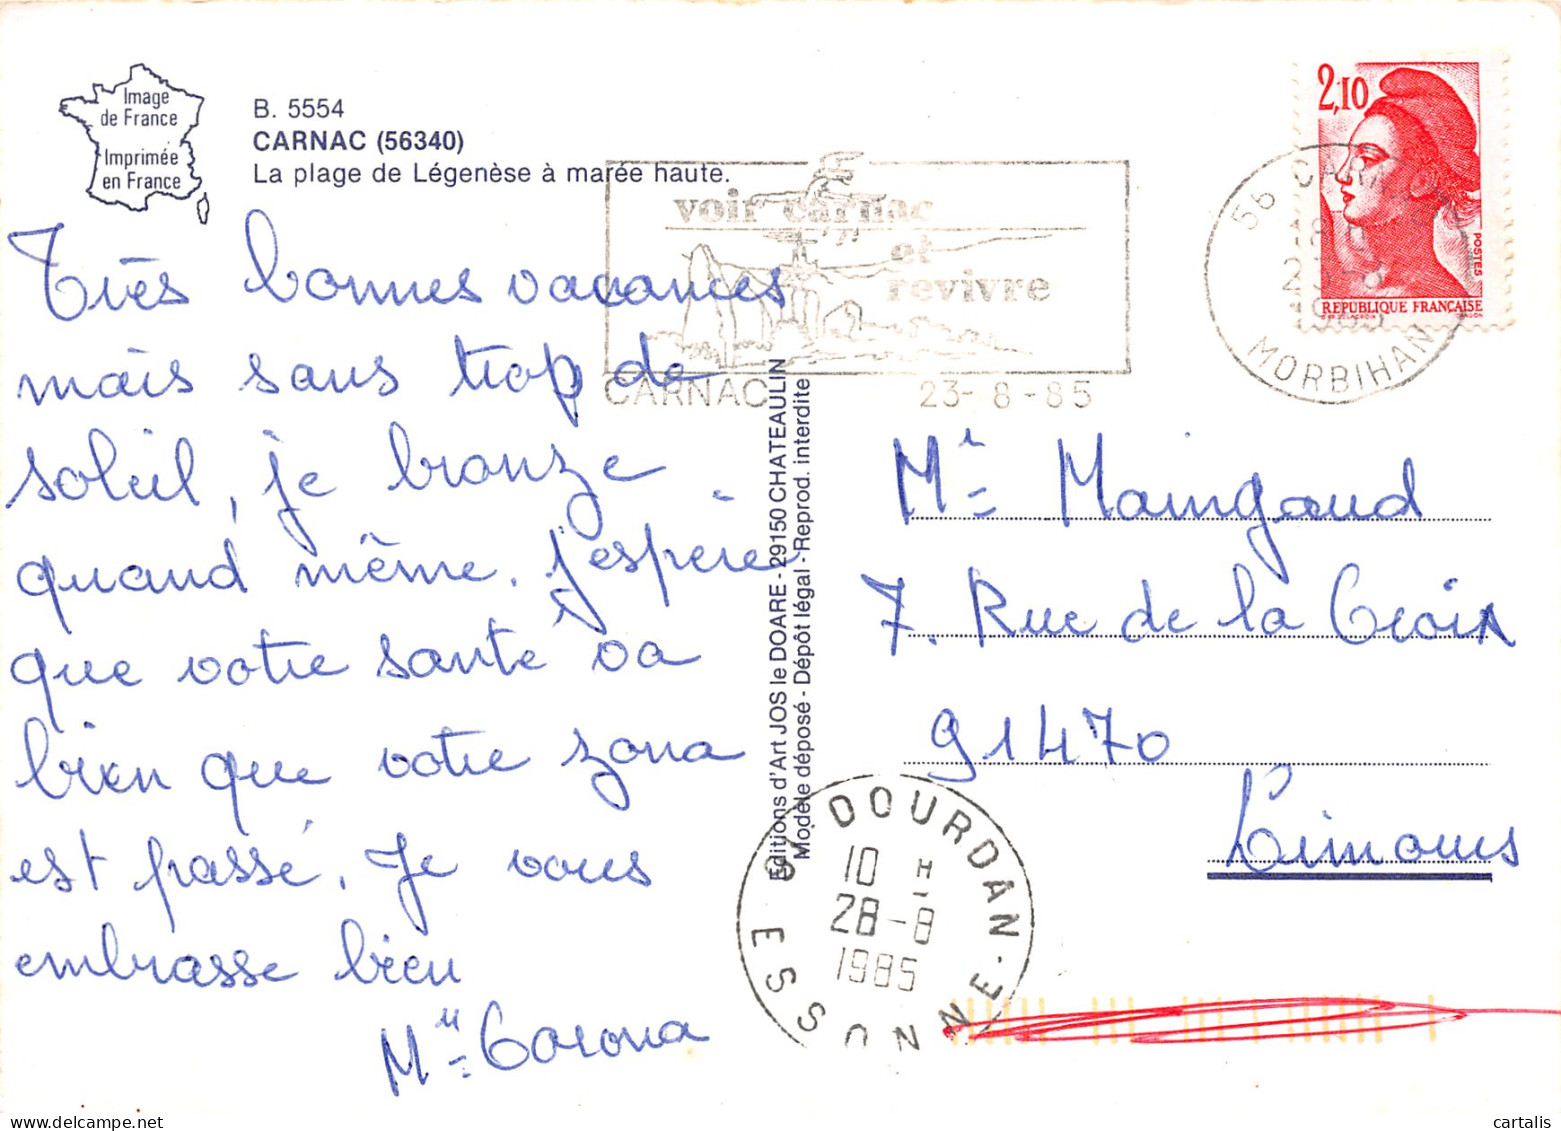 Image
de France
Imprimée
en France
B. 5554
CARNAC (56340)
La plage de Légenèse à marée haute.
voir carnac
et
revivre
CARNAC 23-8-85
56 CARNAC
1985
MORBIHAN
2,10
POSTES
REPUBLIQUE FRANÇAISE
Très bonnes vacances
mais sans trop de
soleil, je bronze
quand même. J'espère
que votre santé va
bien que votre zona
est passé. Je vous
embrasse bien
Mll Corona
Editions d'Art JOS le DOARE - 29150 CHATEAULIN
Modèle déposé - Dépôt légal - Reprod. interdite
Mr Maingaud
7. Rue de la Croix
91470
Limours
DOURDAN
10 H
28-8
1985
ESSONNE
cartalis